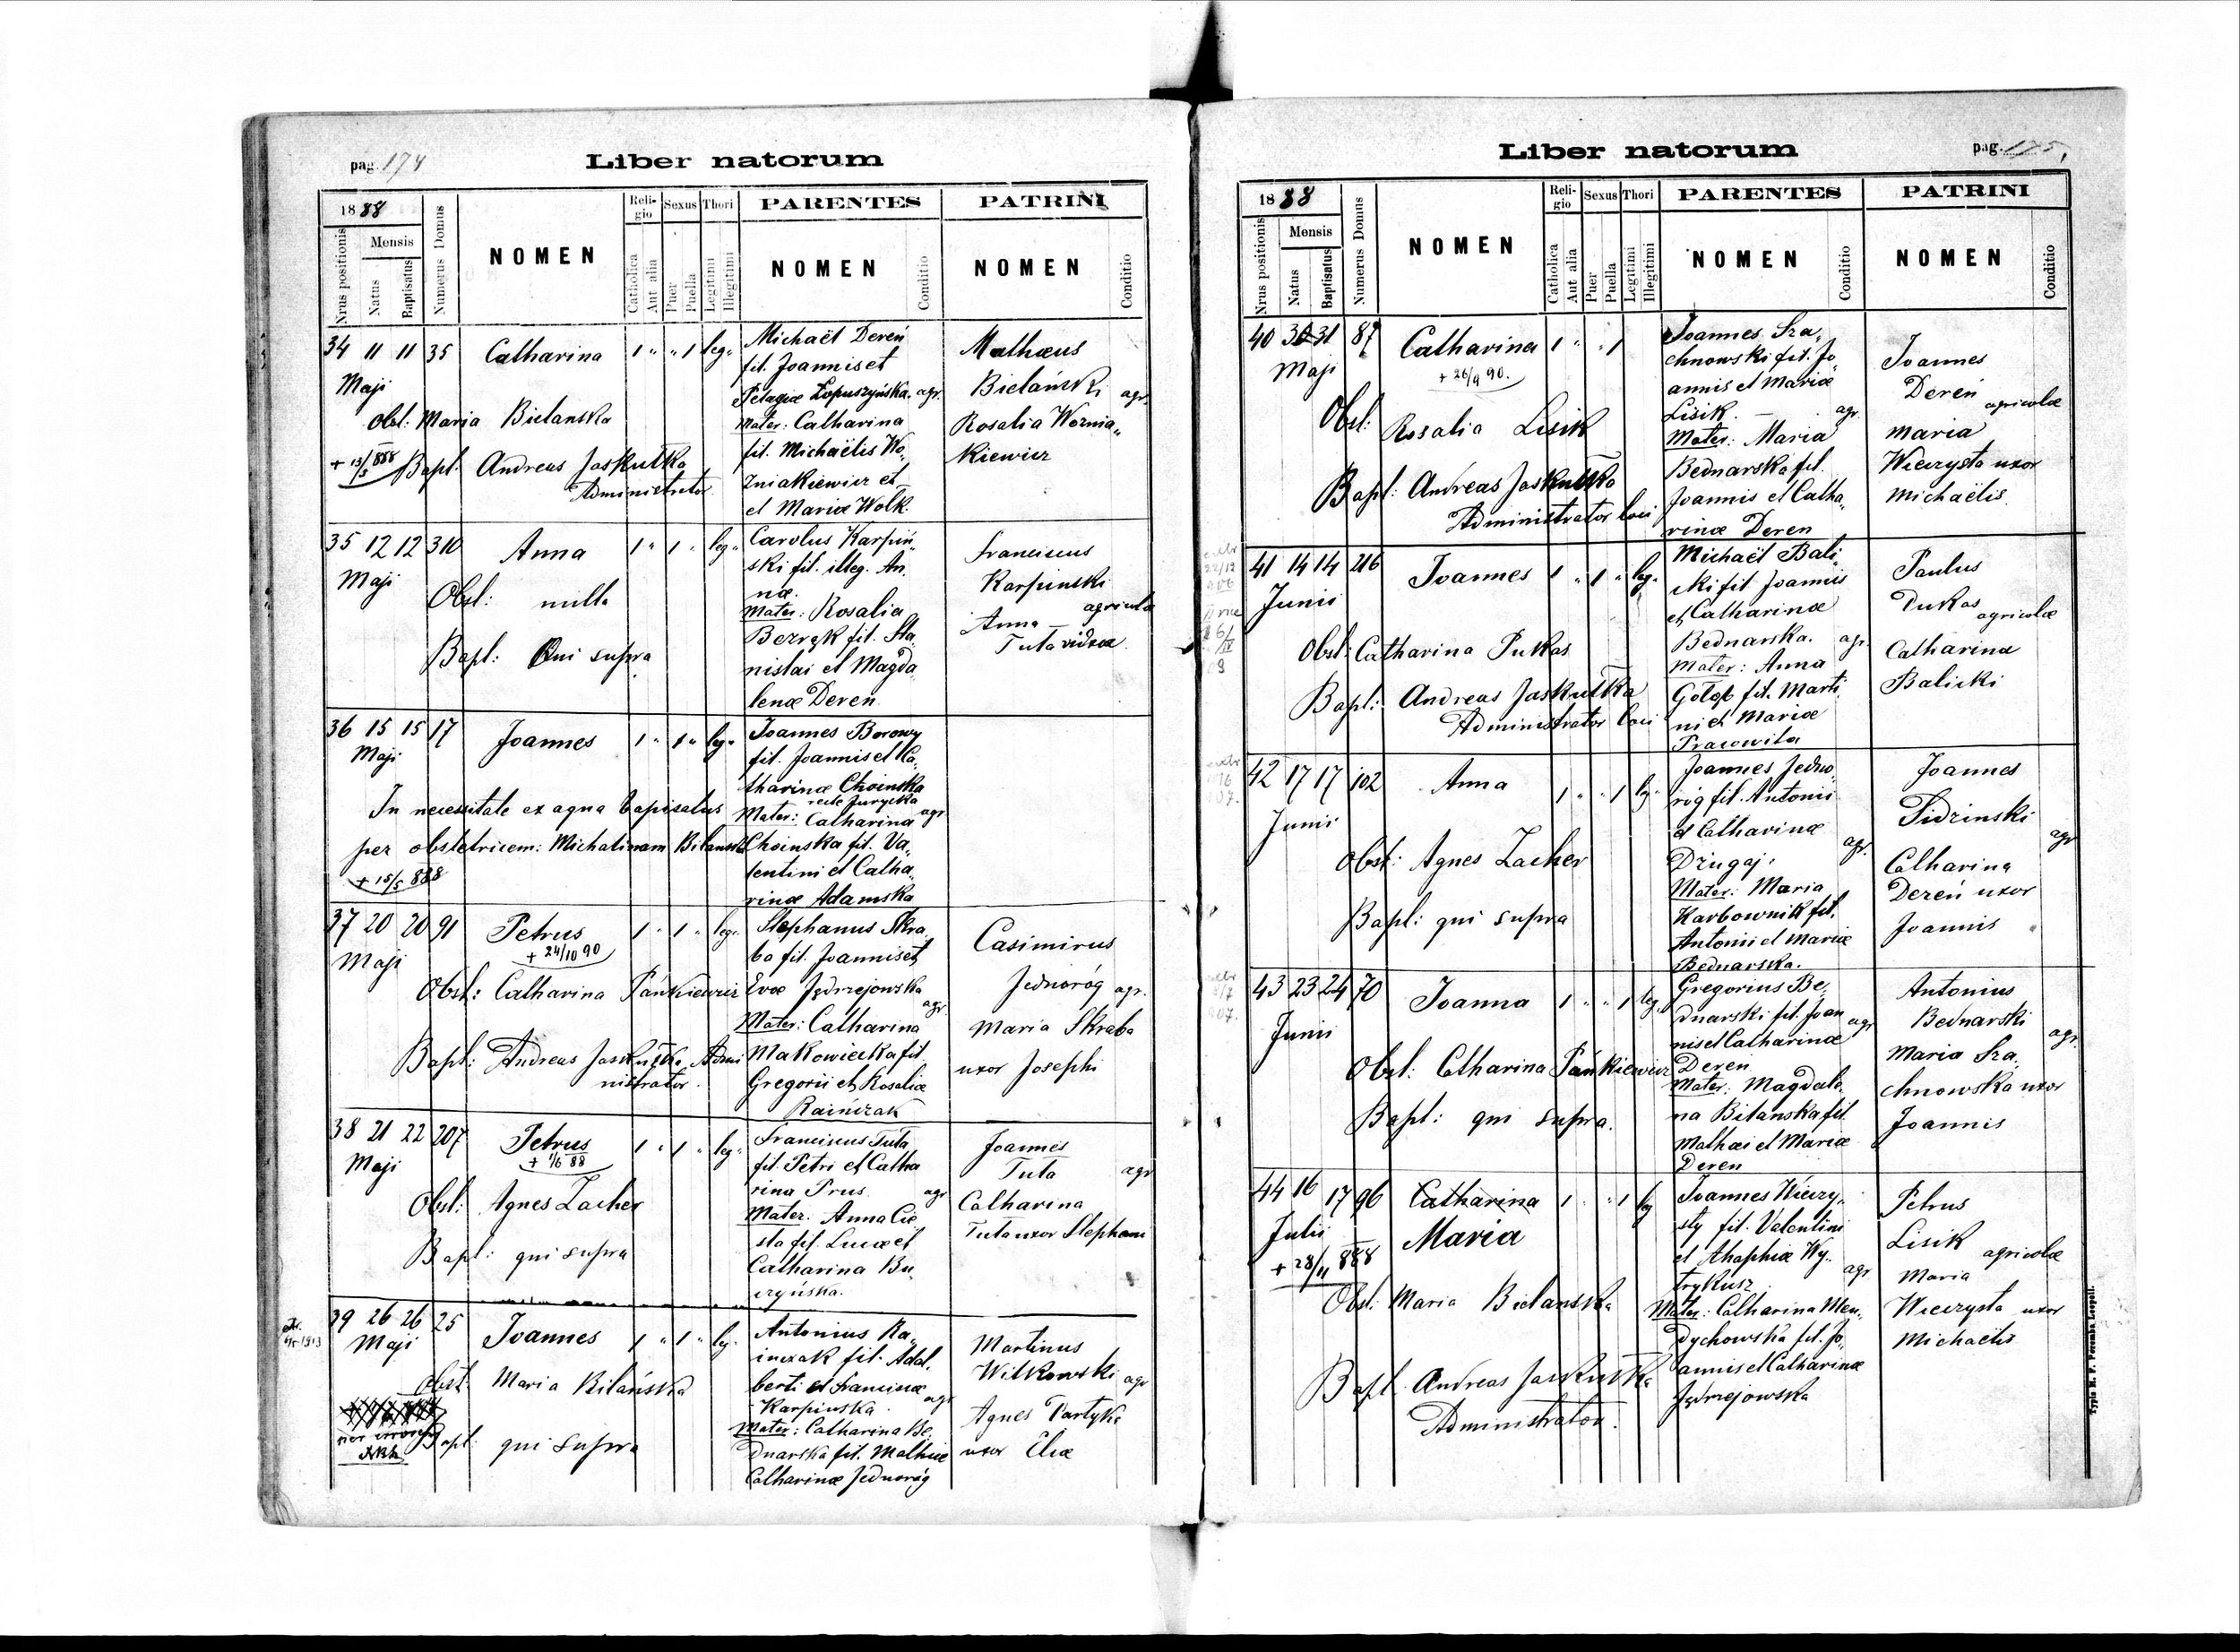 pag. 174
Liber natorum
1888
Nrus positionis
Mensis
Natus
Baptisatus
Numerus Domus
NOMEN
Religio
Catholica
Aut alia
Sexus
Puer
Puella
Thori
Legitimi
Illegitimi
PARENTES
NOMEN
Conditio
PATRINI
NOMEN
Conditio
34 11 11 35 Catharina 1 " " 1 leg.
Maji
Obst: Maria Bielanska
+ 13/5 888 Bapt. Andreas Jaskułka
Administrator
Michaël Dereń
fil. Joannis et
Pelagiæ Łopuszyńska. agr.
Mater: Catharina
fil. Michaëlis Wo„
zniakiewicz et
et Mariæ Wolk.
Mathæus
Bielański agr.
Rosalia Woznia„
kiewicz
35 12 12 310 Anna 1 " 1 " leg.
Maji
Obst: nulla
Bapt: Qui supra
Carolus Karpiń„
ski fil. illeg. An„
næ.
Mater: Rosalia
Bezręk fil. Sta„
nislai et Magda
lenæ Deren
Franciscus
Karpinski
agricolæ
Anna
Tuta vidua
36 15 15 17 Joannes 1 " 1 " leg.
Maji
In necessitate ex aqua bapisatus
per obstetricem: Michalinam Bilanska
+ 15/5 888
Joannes Borowy
fil. Joannis et Ca„
tharinæ Choinska
recte Jurycka
Mater: Catharina agr
Choinska fil. Va„
lentini et Catha„
rinæ Adamska
37 20 20 91 Petrus 1 " 1 " leg.
+ 24/10 90
Maji
Obst: Catharina Pańkiewicz
Bapt: Andreas Jaskułka Admi
nistrator.
Stephanus Skra„
ba fil. Joannis et
Evæ Jędrzejowska
agr
Mater: Catharina
Makowiecka fil.
Gregorii et Rosaliæ
Raińczak
Casimirus
Jednoróg agr.
Maria Skraba
uxor Josephi
38 21 22 207 Petrus 1 " 1 " leg.
+ 1/6 88
Maji
Obst: Agnes Zacher
Bapt: qui supra
Franciscus Tuta
fil. Petri et Catha
rina Prus. agr
Mater. Anna Cie
sla fil. Lucæ et
Catharina Bu„
czyńska.
Joannes
Tuta agr
Catharina
Tuta uxor Stephani
39 26 26 25 Joannes 1 " 1 " leg.
Maji
Obst. Maria Bilańska
Bapt: qui supra
Antonius Ra„
inczak fil. Adal„
berti et Franciscæ
Karpinska. agr
Mater: Catharina Be„
dnarska fil. Mathiæ
Catharinæ Jednoróg
Martinus
Witkowski agr
Agnes Partyka
uxor Eliæ
Liber natorum
pag. 175,
1888
Nrus positionis
Mensis
Natus
Baptisatus
Numerus Domus
NOMEN
Religio
Catholica
Aut alia
Sexus
Puer
Puella
Thori
Legitimi
Illegitimi
PARENTES
NOMEN
Conditio
PATRINI
NOMEN
Conditio
40 30 31 87 Catharina 1 " " 1
+ 26/9 90.
Maji
Obst: Rosalia Lisik
Bapt: Andreas Jaskułka
Administrator loci
Joannes Sra„
chnowski fil. Jo„
annis et Mariæ
Lisik. agr.
Mater: Maria
Bednarska fil.
Joannis et Catha„
rinæ Deren
Joannes
Dereń
agricolæ
Maria
Wieczysta uxor
Michaëlis
41 14 14 216 Joannes 1 " 1 " leg.
Junii
Obst: Catharina Pukas
Bapt: Andreas Jaskułka
Administrator loci
Michaël Bali„
cki fil Joannis
et Catharinæ
Bednarska. agr.
Mater: Anna
Gołąb fil. Marti„
ni et Mariæ
Pracowita
Paulus
Dukas
agricolæ
Catharina
Balicki
42 17 17 102 Anna 1 " " 1 leg
Junii
Obst: Agnes Zacher
Bapt: qui supra
Joannes Jedno„
róg fil. Antonii
et Catharinæ
Dziugaj. agr.
Mater: Maria
Karbownik fil.
Antonii et Mariæ
Bednarska.
Joannes
Pidzinski
agr
Catharina
Dereń uxor
Joannis
43 23 24 70 Joanna 1 " " 1 leg.
Junii
Obst: Catharina Pańkiewicz
Bapt: qui supra.
Gregorius Be„
dnarski fil. Joan
nis et Catharinæ agr
Deren
Mater: Magdale„
na Bilanska fil
Mathæi et Mariæ
Deren
Antonius
Bednarski
agr.
Maria Sra„
chnowska uxor
Joannis
44 16 17 96 Catharina 1 " " 1 leg
Julii Maria
+ 28/11 888
Obst: Maria Bielanska
Bapt. Andreas Jaskułka
Administrator.
Joannes Wieczy„
sty fil. Valentini
et Ahaphiæ Wy„
trykusz agr
Mater: Catharina Men„
dychowska fil. Jo„
annis et Catharinæ
Jędrzejowska
Petrus
Lisik
agricolæ
Maria
Wieczysta uxor
Michaëlis
Typis H. F. Poremba Leopoli.